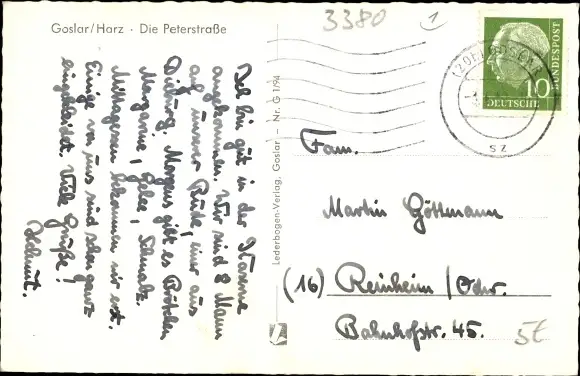 Goslar/Harz · Die Peterstraße
3380
1
(20b) GOSLAR
SZ
10
DEUTSCHE
BUNDESPOST
Ich bin gut in der Kaserne
angekommen. Wir sind 8 Mann
auf unserer Bude, einer aus
Dieburg. Morgens gibt es Brötchen
Margarine, Gelee, Schmalz.
Mittagessen bekommen wir erst.
Einige von uns sind schon ganz
eingekleidet. Viele Grüße!
Helmut.
Lederbogen-Verlag, Goslar – Nr. G 1/94
Fam.
Martin Göttmann
(16) Reinheim / Odw.
Bahnhofstr. 45.
5t